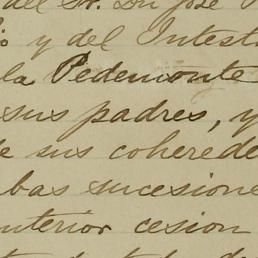 del Sr. Don José
y del Intest
la Pedemonte
sus padres, y
de sus coherede
bas sucesione
anterior cesion